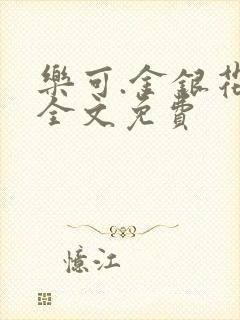 樂可.金銀花
全文免費
憶江